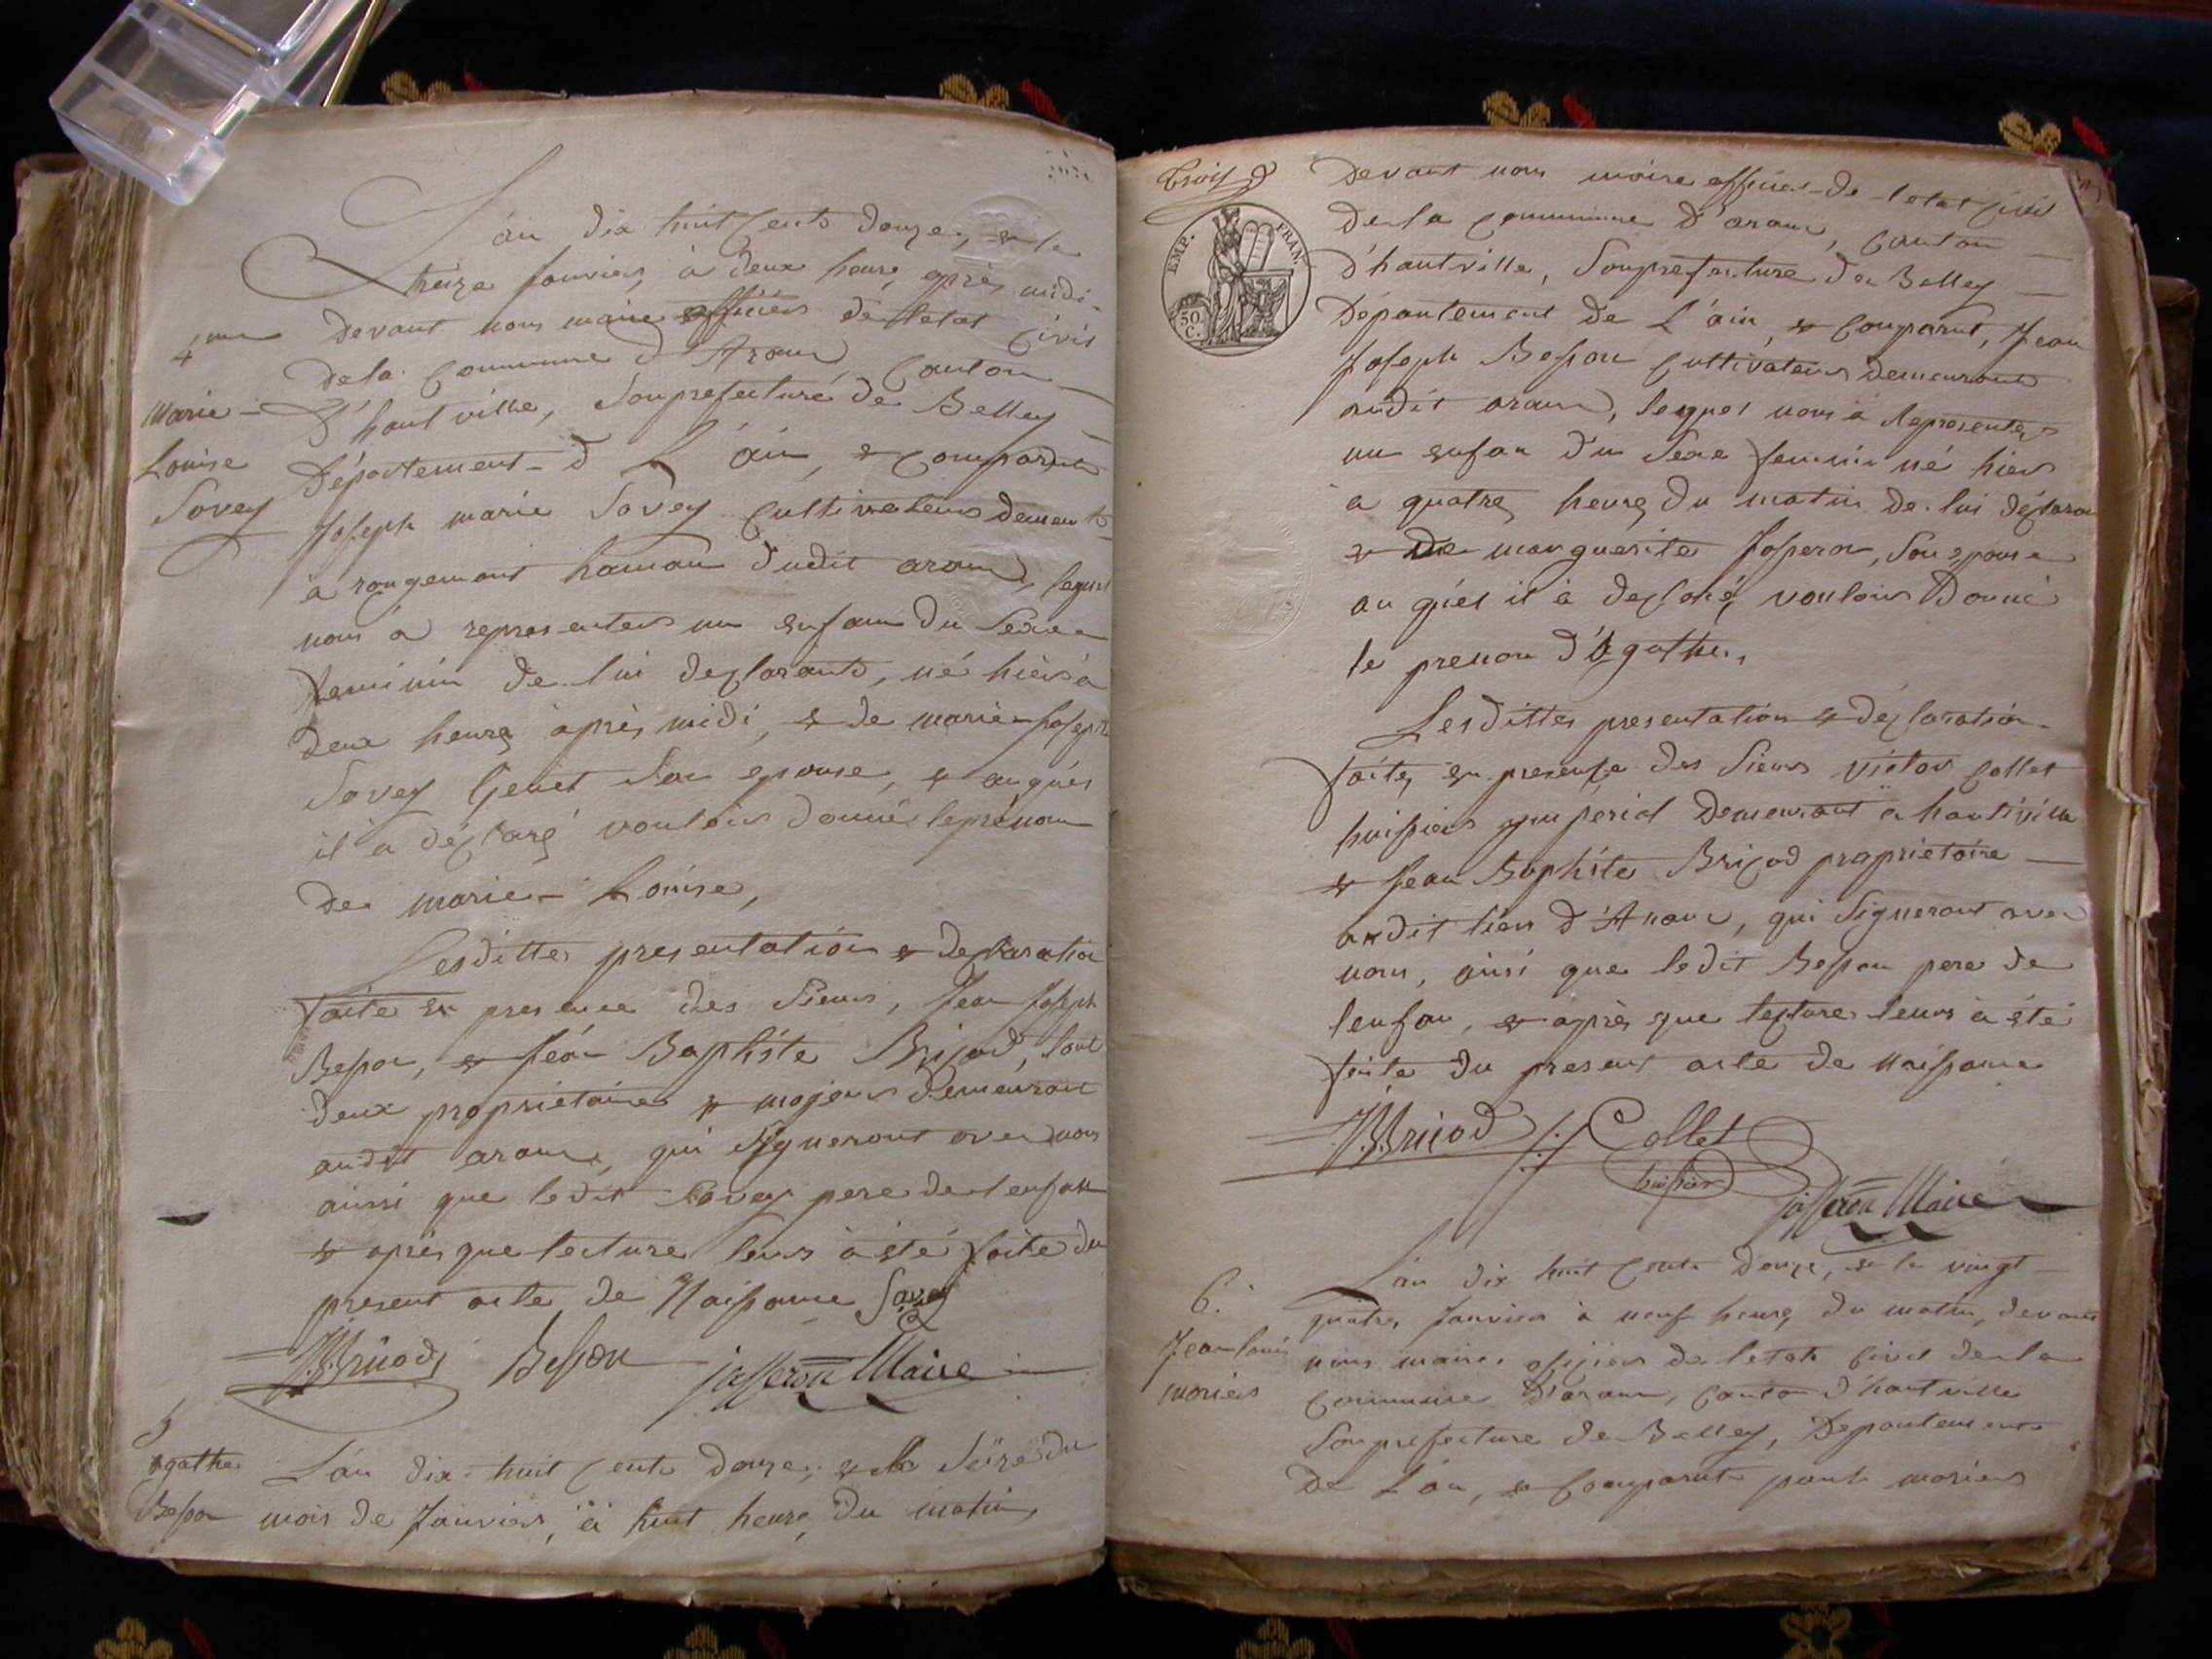 L'an dix huit cents douze, & le
treize janvier, à deux heure après midi
4me
devant nous maire officier de l'etat civil
dela commune d'Aranc, canton
Marie
Louise
Savey
d'hautville, Souprefecture de Belley
Département d L'ain, & comparut
Joseph marie Savey cultivateur demeurt
à rougemont hamau dudit aranc, lequel
nous a representer un enfan du Sexe
feminin de lui desclarant, né hièr à
deux heures après midi, & de marie joseph
Savey Genet son epouse, & auquel
il a désclaré vouloir donné le prénom
de marie Louise,
Lesdittes presentation & desclaration
faite en presence des Sieurs, Jean Joseph
Besson, & Jean Baptiste Brizod, tout
deux propriétaire & majeur demeurant
audit aranc, qui Signeront avec nous
ainsi que ledit Savey pere de l enfant
& après que lecture leur à été faite du
present acte de Naissance Savey
JBBrisod Besson josseron Maire
5
agathe
Besson
L'an dix huit cents douze, & le Seize du
mois de Janvier, à huit heure du matin
trois
EMP. FRAN.
50 C.
Devant nous maire officier de l etat civil
dela commune d'aranc, canton
d'hautville, Souprefecture de Belley
Departement de L'ain, & comparut, Jean
Joseph Besson cultivateur demeurant
audit aranc, lequel nous à Representer
un enfan du Sexe feminin né hier
a quatre heure du matin de lui déclaran
& de marguerite josseron, Son epouse
au quel il à desclaré, vouloir Donné
le prenom d'Agathe,
Lesdittes presentation & désclaration
faite en presence des Sieurs victor Collet
huissier imperial demeurant a hautville
& Jean Baptiste Brizod propriétaire
audit lieu d'Aranc, qui Signeront avec
nous, ainsi que ledit Besson pere de
lenfan, & après que lecture leur à été
faite du present acte de naissance
JBBrisod Collet
huissier
josseron Maire
6.
Jean louis
moriers
L'an dix huit cents douze, & le vingt
quatre Janvier à neuf heure du matin, devant
nous maire officier de l etat civil de la
commune d'aranc, canton d'hautville
Souprefecture de Belley, Departement
De L'ain, & comparut